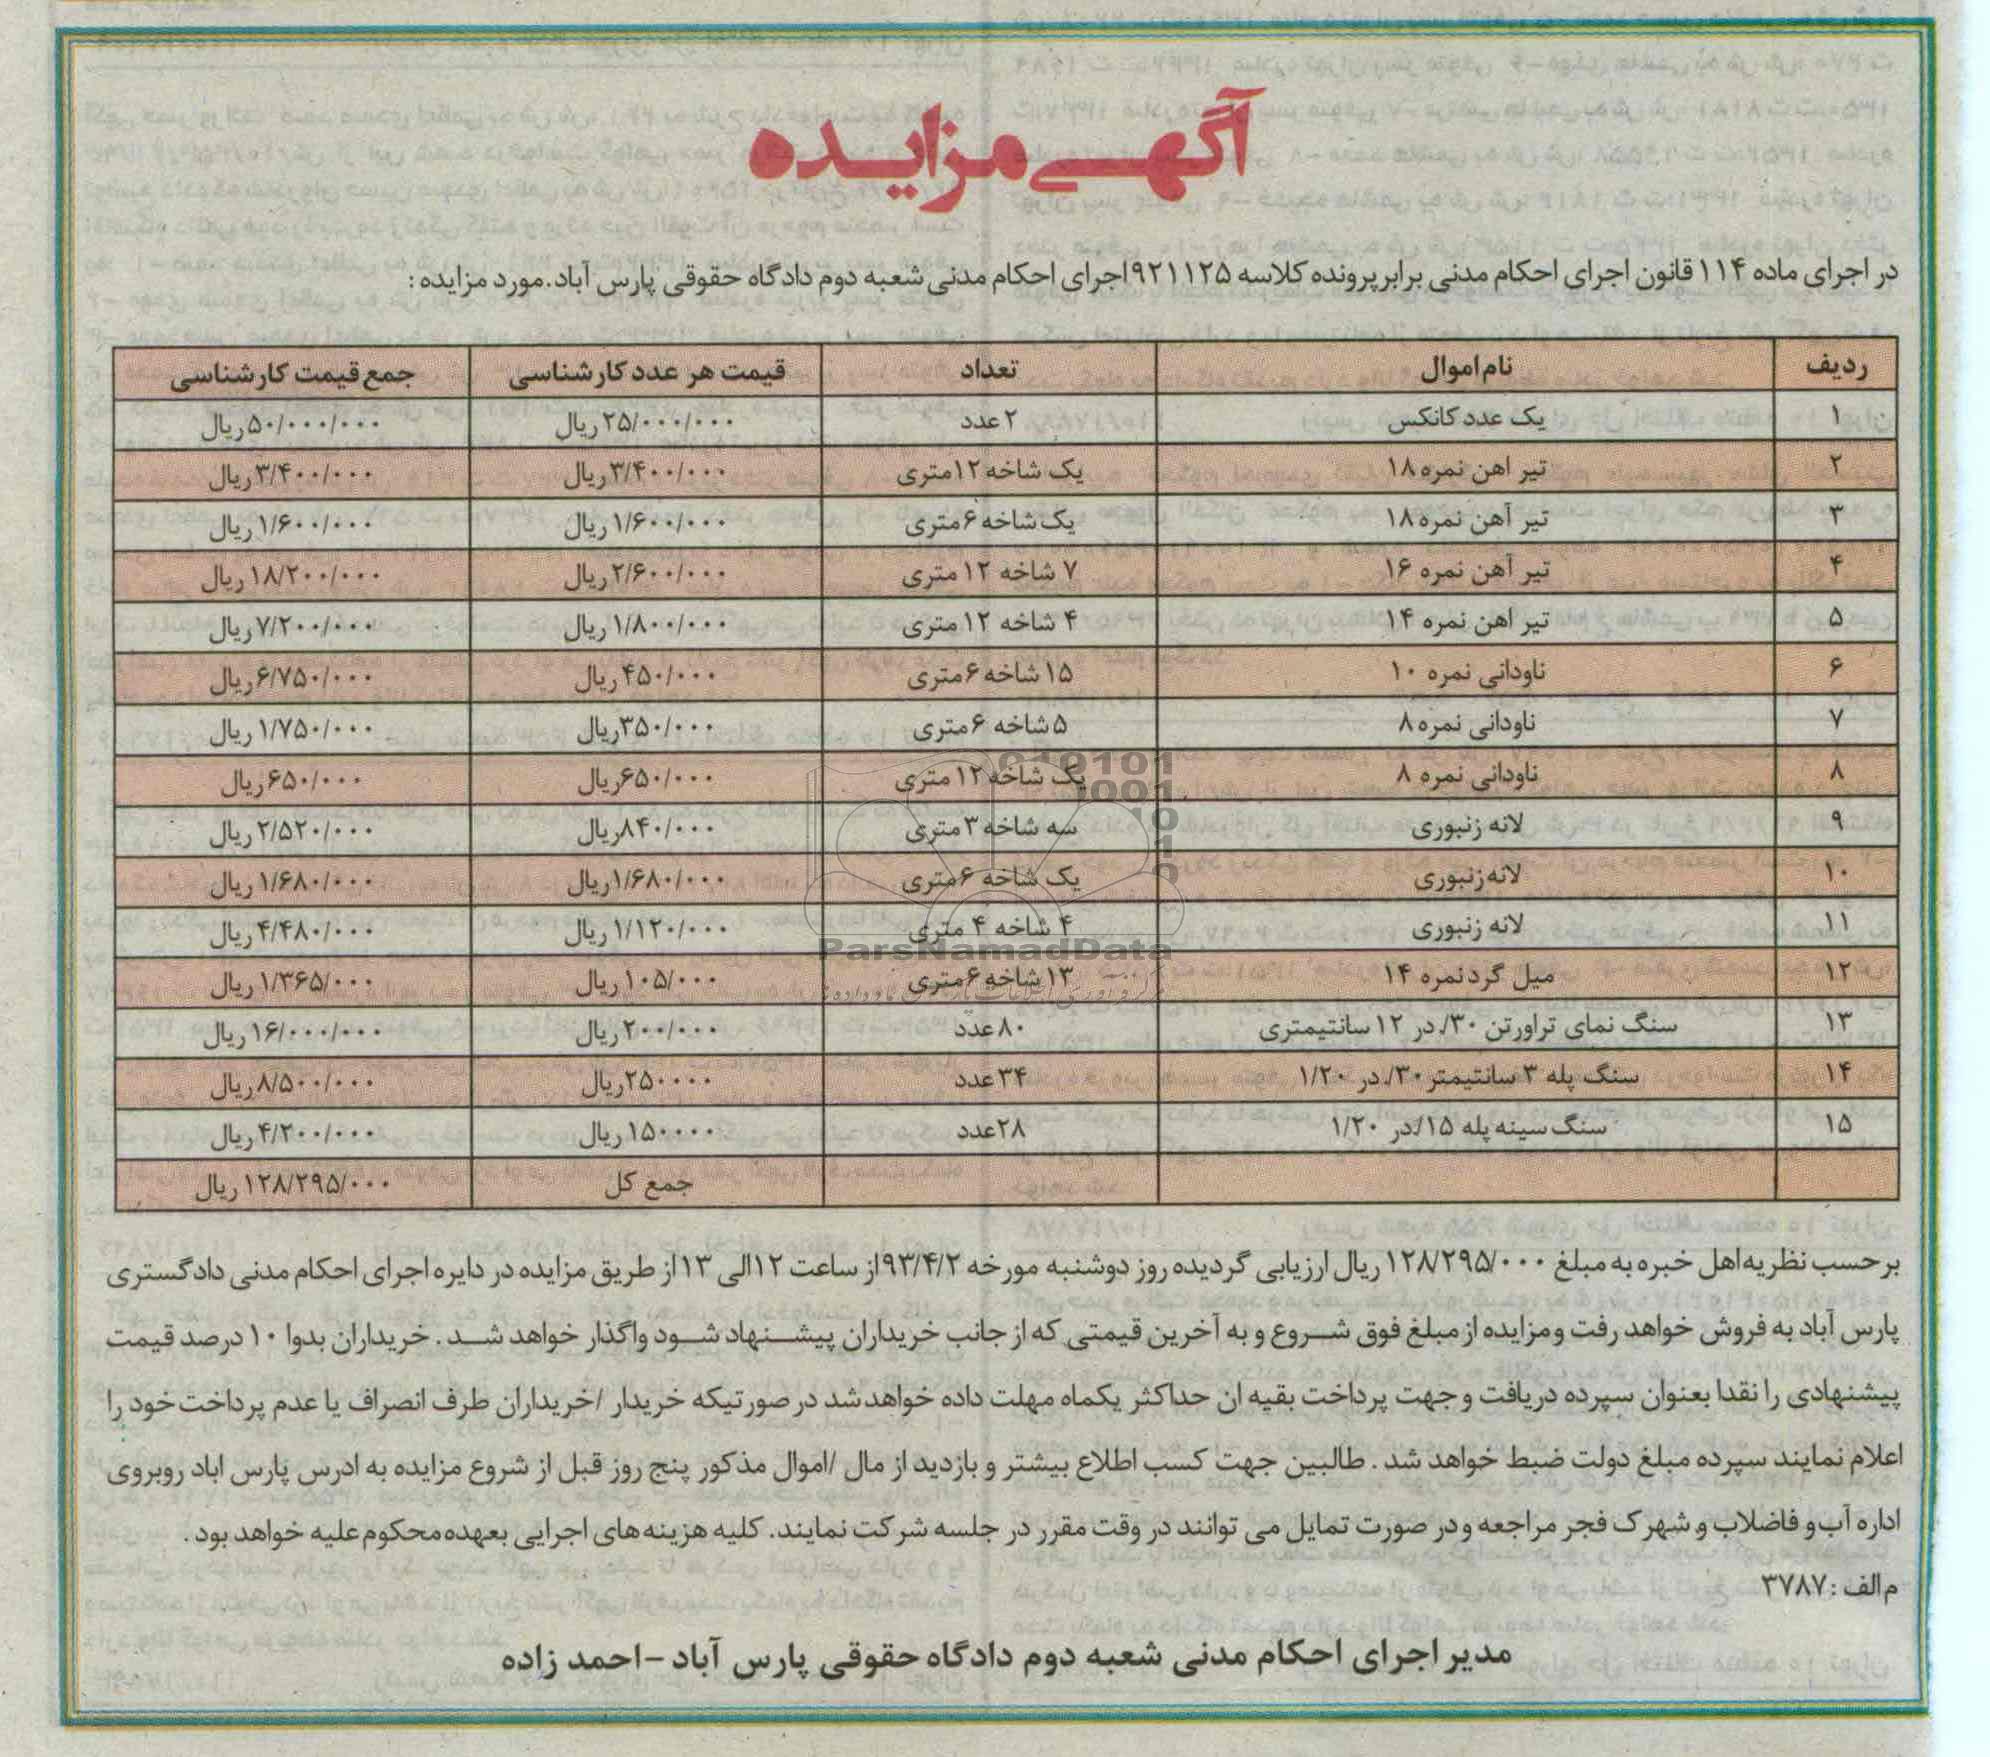 آگهی مزایده
در اجرای ماده ۱۱۴ قانون اجرای احکام مدنی برابر پرونده کلاسه ۹۲۱۱۲۵ اجرای احکام مدنی شعبه دوم دادگاه حقوقی پارس آباد.مورد مزایده :
ردیف نام اموال تعداد قیمت هر عدد کارشناسی جمع قیمت کارشناسی
۱ یک عدد کانکس ۲ عدد ۲۵/۰۰۰/۰۰۰ ریال ۵۰/۰۰۰/۰۰۰ ریال
۲ تیر اهن نمره ۱۸ یک شاخه ۱۲ متری ۳/۴۰۰/۰۰۰ ریال ۳/۴۰۰/۰۰۰ ریال
۳ تیر آهن نمره ۱۸ یک شاخه ۶ متری ۱/۶۰۰/۰۰۰ ریال ۱/۶۰۰/۰۰۰ ریال
۴ تیر آهن نمره ۱۶ ۷ شاخه ۱۲ متری ۲/۶۰۰/۰۰۰ ریال ۱۸/۲۰۰/۰۰۰ ریال
۵ تیر اهن نمره ۱۴ ۴ شاخه ۱۲ متری ۱/۸۰۰/۰۰۰ ریال ۷/۲۰۰/۰۰۰ ریال
۶ ناودانی نمره ۱۰ ۱۵ شاخه ۶ متری ۴۵۰/۰۰۰ ریال ۶/۷۵۰/۰۰۰ ریال
۷ ناودانی نمره ۸ ۵ شاخه ۶ متری ۳۵۰/۰۰۰ ریال ۱/۷۵۰/۰۰۰ ریال
۸ ناودانی نمره ۸ یک شاخه ۱۲ متری ۶۵۰/۰۰۰ ریال ۶۵۰/۰۰۰ ریال
۹ لانه زنبوری سه شاخه ۳ متری ۸۴۰/۰۰۰ ریال ۲/۵۲۰/۰۰۰ ریال
۱۰ لانه زنبوری یک شاخه ۶ متری ۱/۶۸۰/۰۰۰ ریال ۱/۶۸۰/۰۰۰ ریال
۱۱ لانه زنبوری ۴ شاخه ۴ متری ۱/۱۲۰/۰۰۰ ریال ۴/۴۸۰/۰۰۰ ریال
۱۲ میل گرد نمره ۱۴ ۱۳ شاخه ۶ متری ۱۰۵/۰۰۰ ریال ۱/۳۶۵/۰۰۰ ریال
۱۳ سنگ نمای تراورتن ۳۰/. در ۱۲ سانتیمتری ۸۰ عدد ۲۰۰/۰۰۰ ریال ۱۶/۰۰۰/۰۰۰ ریال
۱۴ سنگ پله ۳ سانتیمتر ۳۰/. در ۱/۲۰ ۳۴ عدد ۲۵۰۰۰۰ ریال ۸/۵۰۰/۰۰۰ ریال
۱۵ سنگ سینه پله ۱۵/. در ۱/۲۰ ۲۸ عدد ۱۵۰۰۰۰ ریال ۴/۲۰۰/۰۰۰ ریال
جمع کل ۱۲۸/۲۹۵/۰۰۰ ریال
010101
0001
10
1
0
ParsNamadData
برحسب نظریه اهل خبره به مبلغ ۱۲۸/۲۹۵/۰۰۰ ریال ارزیابی گردیده روز دوشنبه مورخه ۹۳/۴/۲ از ساعت ۱۲ الی ۱۳ از طریق مزایده در دایره اجرای احکام مدنی دادگستری
پارس آباد به فروش خواهد رفت و مزایده از مبلغ فوق شروع و به آخرین قیمتی که از جانب خریداران پیشنهاد شود واگذار خواهد شد . خریداران بدوا ۱۰ درصد قیمت
پیشنهادی را نقدا بعنوان سپرده دریافت و جهت پرداخت بقیه ان حداکثر یکماه مهلت داده خواهد شد در صورتیکه خریدار /خریداران طرف انصراف یا عدم پرداخت خود را
اعلام نمایند سپرده مبلغ دولت ضبط خواهد شد . طالبین جهت کسب اطلاع بیشتر و بازدید از مال /اموال مذکور پنج روز قبل از شروع مزایده به ادرس پارس اباد روبروی
اداره آب و فاضلاب و شهرک فجر مراجعه و در صورت تمایل می توانند در وقت مقرر در جلسه شرکت نمایند. کلیه هزینه های اجرایی بعهده محکوم علیه خواهد بود .
م الف : ۳۷۸۷
مدیر اجرای احکام مدنی شعبه دوم دادگاه حقوقی پارس آباد -احمد زاده